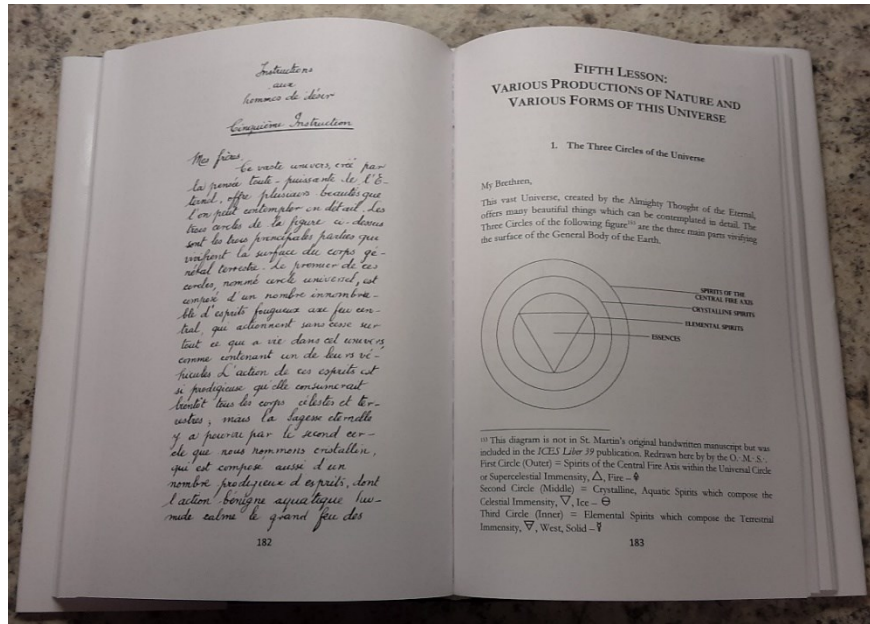 Instructions
aux
hommes de désir
Cinquième Instruction
Mes frères,
Ce vaste univers, créé par
la pensée toute-puissante de l'É-
ternel, offre plusieurs beautés que
l'on peut contempler en détail. Les
trois cercles de la figure ci-dessus
sont les trois principales parties qui
vivifient la surface du corps gé-
néral terrestre. Le premier de ces
cercles, nommé cercle universel, est
composé d'un nombre innombra-
ble d'esprits fougueux axe feu cen-
tral, qui actionnent sans cesse sur
tout ce qui a vie dans cet univers
comme contenant un de leurs vé-
hicules. L'action de ces esprits est
si prodigieuse qu'elle consumerait
bientôt tous les corps célestes et ter-
restres, mais la Sagesse éternelle
y a pourvu par le second cer-
cle que nous nommons cristallin,
qui est composé aussi d'un
nombre prodigieux d'esprits, dont
l'action bénigne aquatique hu-
mide calme le grand feu des
182
FIFTH LESSON:
VARIOUS PRODUCTIONS OF NATURE AND
VARIOUS FORMS OF THIS UNIVERSE
1. The Three Circles of the Universe
My Brethren,
This vast Universe, created by the Almighty Thought of the Eternal,
offers many beautiful things which can be contemplated in detail. The
Three Circles of the following figure are the three main parts vivifying
the surface of the General Body of the Earth.
SPIRITS OF THE
CENTRAL FIRE AXIS
CRYSTALLINE SPIRITS
ELEMENTAL SPIRITS
ESSENCES
This diagram is not in St. Martin's original handwritten manuscript but was
included in the ICES Liber 39 publication. Redrawn here by by the O.·.M.·.S.·.
First Circle (Outer) = Spirits of the Central Fire Axis within the Universal Circle
or Supercelestial Immensity, △, Fire – 🜍
Second Circle (Middle) = Crystalline, Aquatic Spirits which compose the
Celestial Immensity, ▽, Ice – 🜔
Third Circle (Inner) = Elemental Spirits which compose the Terrestrial
Immensity, 🜃, West, Solid – ☿
183